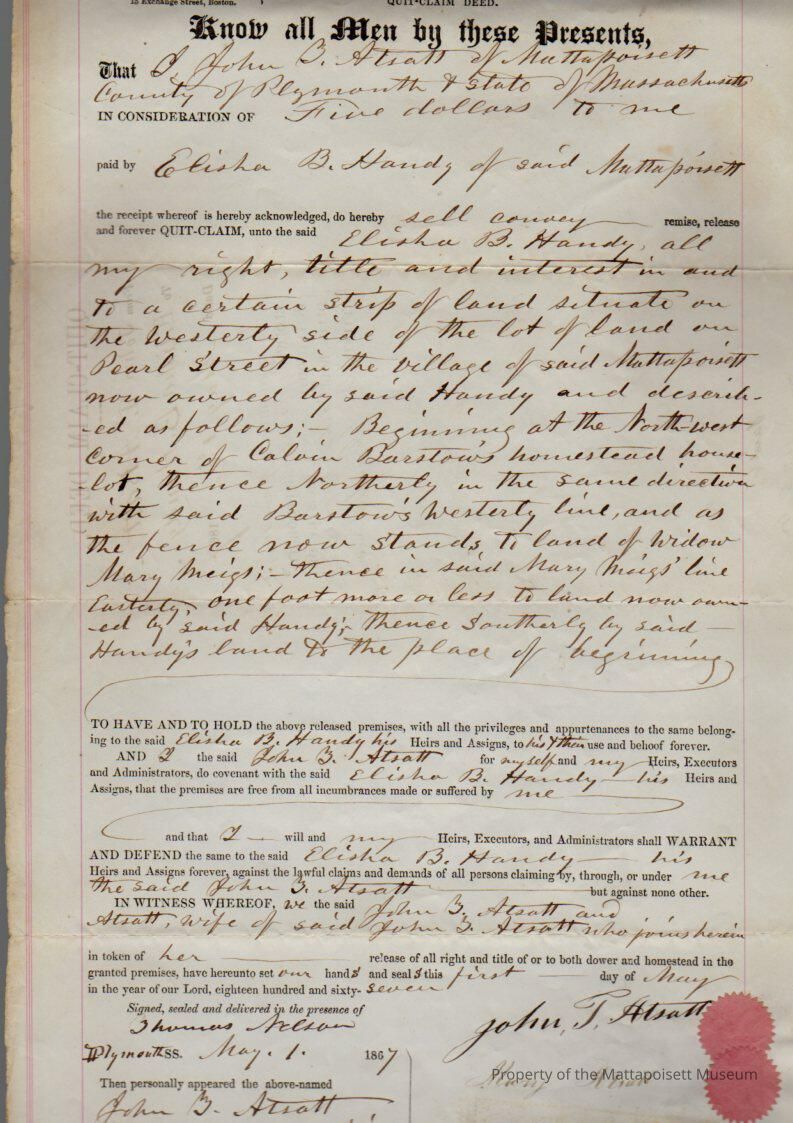 13 Exchange Street, Boston.
QUIT-CLAIM DEED.
Know all Men by these Presents,
That I, John T. Atsatt of Mattapoisett
County of Plymouth & State of Massachusetts
IN CONSIDERATION OF Five dollars to me
paid by Elisha B. Handy of said Mattapoisett
the receipt whereof is hereby acknowledged, do hereby sell convey remise, release
and forever QUIT-CLAIM, unto the said Elisha B. Handy, all
my right, title and interest in and
to a certain strip of land situate on
the Westerly side of the lot of land on
Pearl Street in the village of said Mattapoisett
now owned by said Handy and describ-
-ed as follows;- Beginning at the North-west
corner of Calvin Barstow's homestead house-
-lot, thence Northerly in the same direction
with said Barstow's Westerly line, and as
the fence now stands, to land of Widow
Mary Meigs;- thence in said Mary Meigs' line
Easterly, one foot more or less to land now own-
-ed by said Handy;- thence Southerly by said
Handy's land to the place of beginning
TO HAVE AND TO HOLD the above released premises, with all the privileges and appurtenances to the same belong-
ing to the said Elisha B. Handy his Heirs and Assigns, to his & their use and behoof forever.
AND I the said John T. Atsatt for myself and my Heirs, Executors
and Administrators, do covenant with the said Elisha B. Handy his Heirs and
Assigns, that the premises are free from all incumbrances made or suffered by me
and that I will and my Heirs, Executors, and Administrators shall WARRANT
AND DEFEND the same to the said Elisha B. Handy his
Heirs and Assigns forever, against the lawful claims and demands of all persons claiming by, through, or under me
the said John T. Atsatt but against none other.
IN WITNESS WHEREOF, we the said John T. Atsatt and
Atsatt, wife of said John T. Atsatt who joins herein
in token of her release of all right and title of or to both dower and homestead in the
granted premises, have hereunto set our hands and seals this first day of May
in the year of our Lord, eighteen hundred and sixty-seven
Signed, sealed and delivered in the presence of
Thomas Nelson
John, T. Atsatt
Plymouth SS. May. 1. 1867
Property of the Mattapoisett Museum
Then personally appeared the above-named
John T. Atsatt